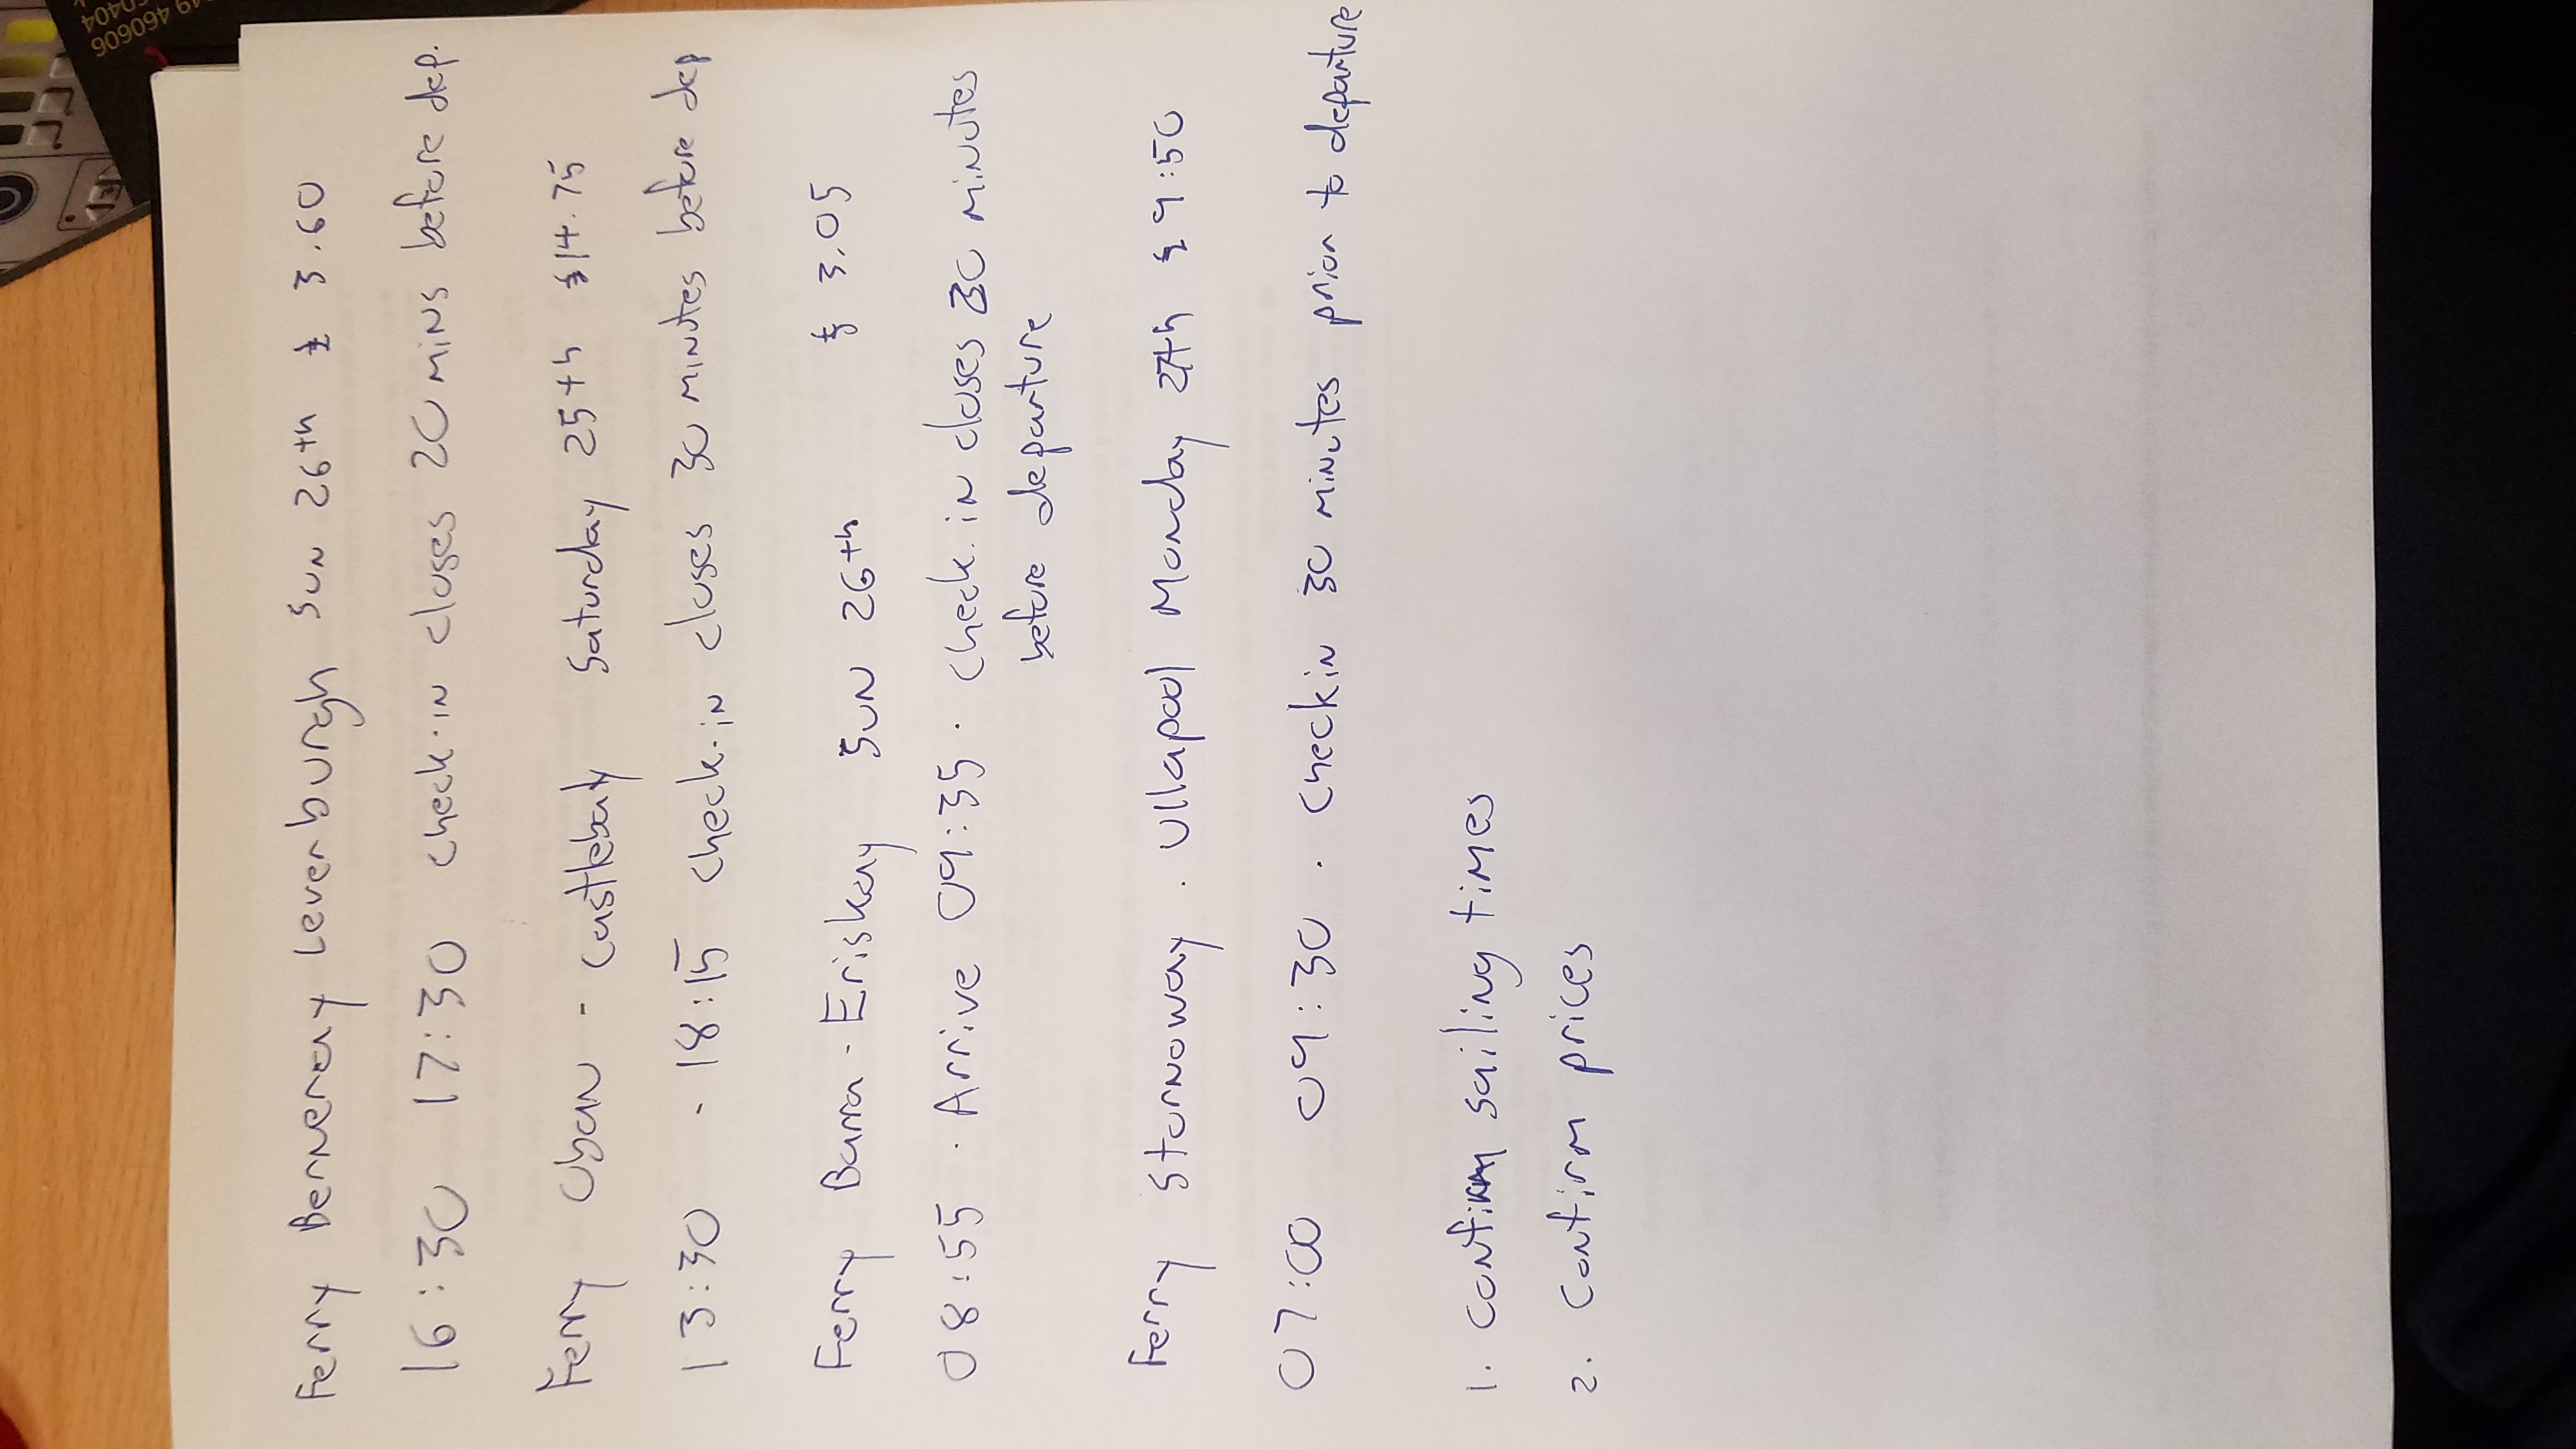 19 460606
Ferry Berneray Leverburgh Sun 26th £ 3.60
16:30 17:30 check-in closes 20 mins before dep.
Ferry Oban - Castlebay Saturday 25th £14.75
13:30 - 18:15 check-in closes 30 minutes before dep
Ferry Barra - Eriskay Sun 26th £ 3.05
08:55 · Arrive 09:35 · check-in closes 30 minutes
before departure
Ferry Stornoway · Ullapool Monday 27th £9:50
07:00 09:30 · check in 30 minutes prior to departure
1. Confirm sailing times
2. Confirm prices